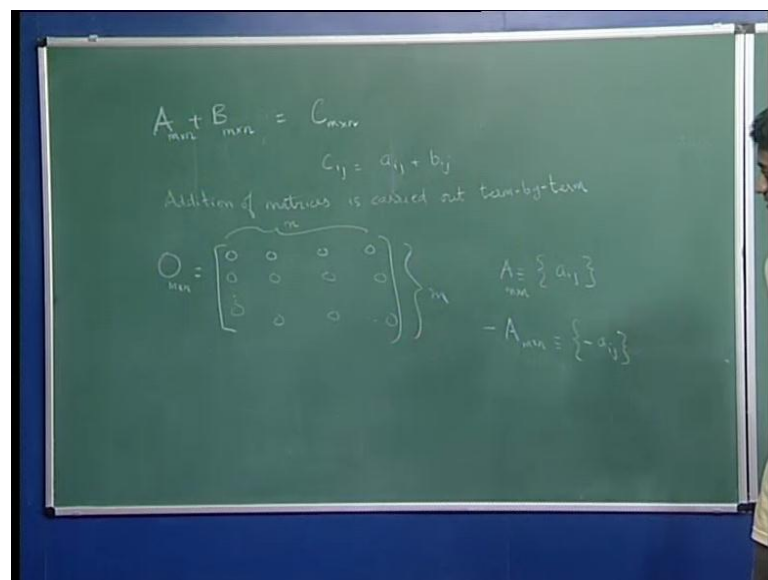 A_{m×n} + B_{m×n} = C_{m×n}
c_{ij} = a_{ij} + b_{ij}
Addition of matrices is carried out term-by-term
n
O_{m×n} = [ 0 0 0 0
0 0 0 0
⋮
0 0 0 ... 0 ] } m
A_{m×n} ≡ {a_{ij}}
-A_{m×n} ≡ {-a_{ij}}